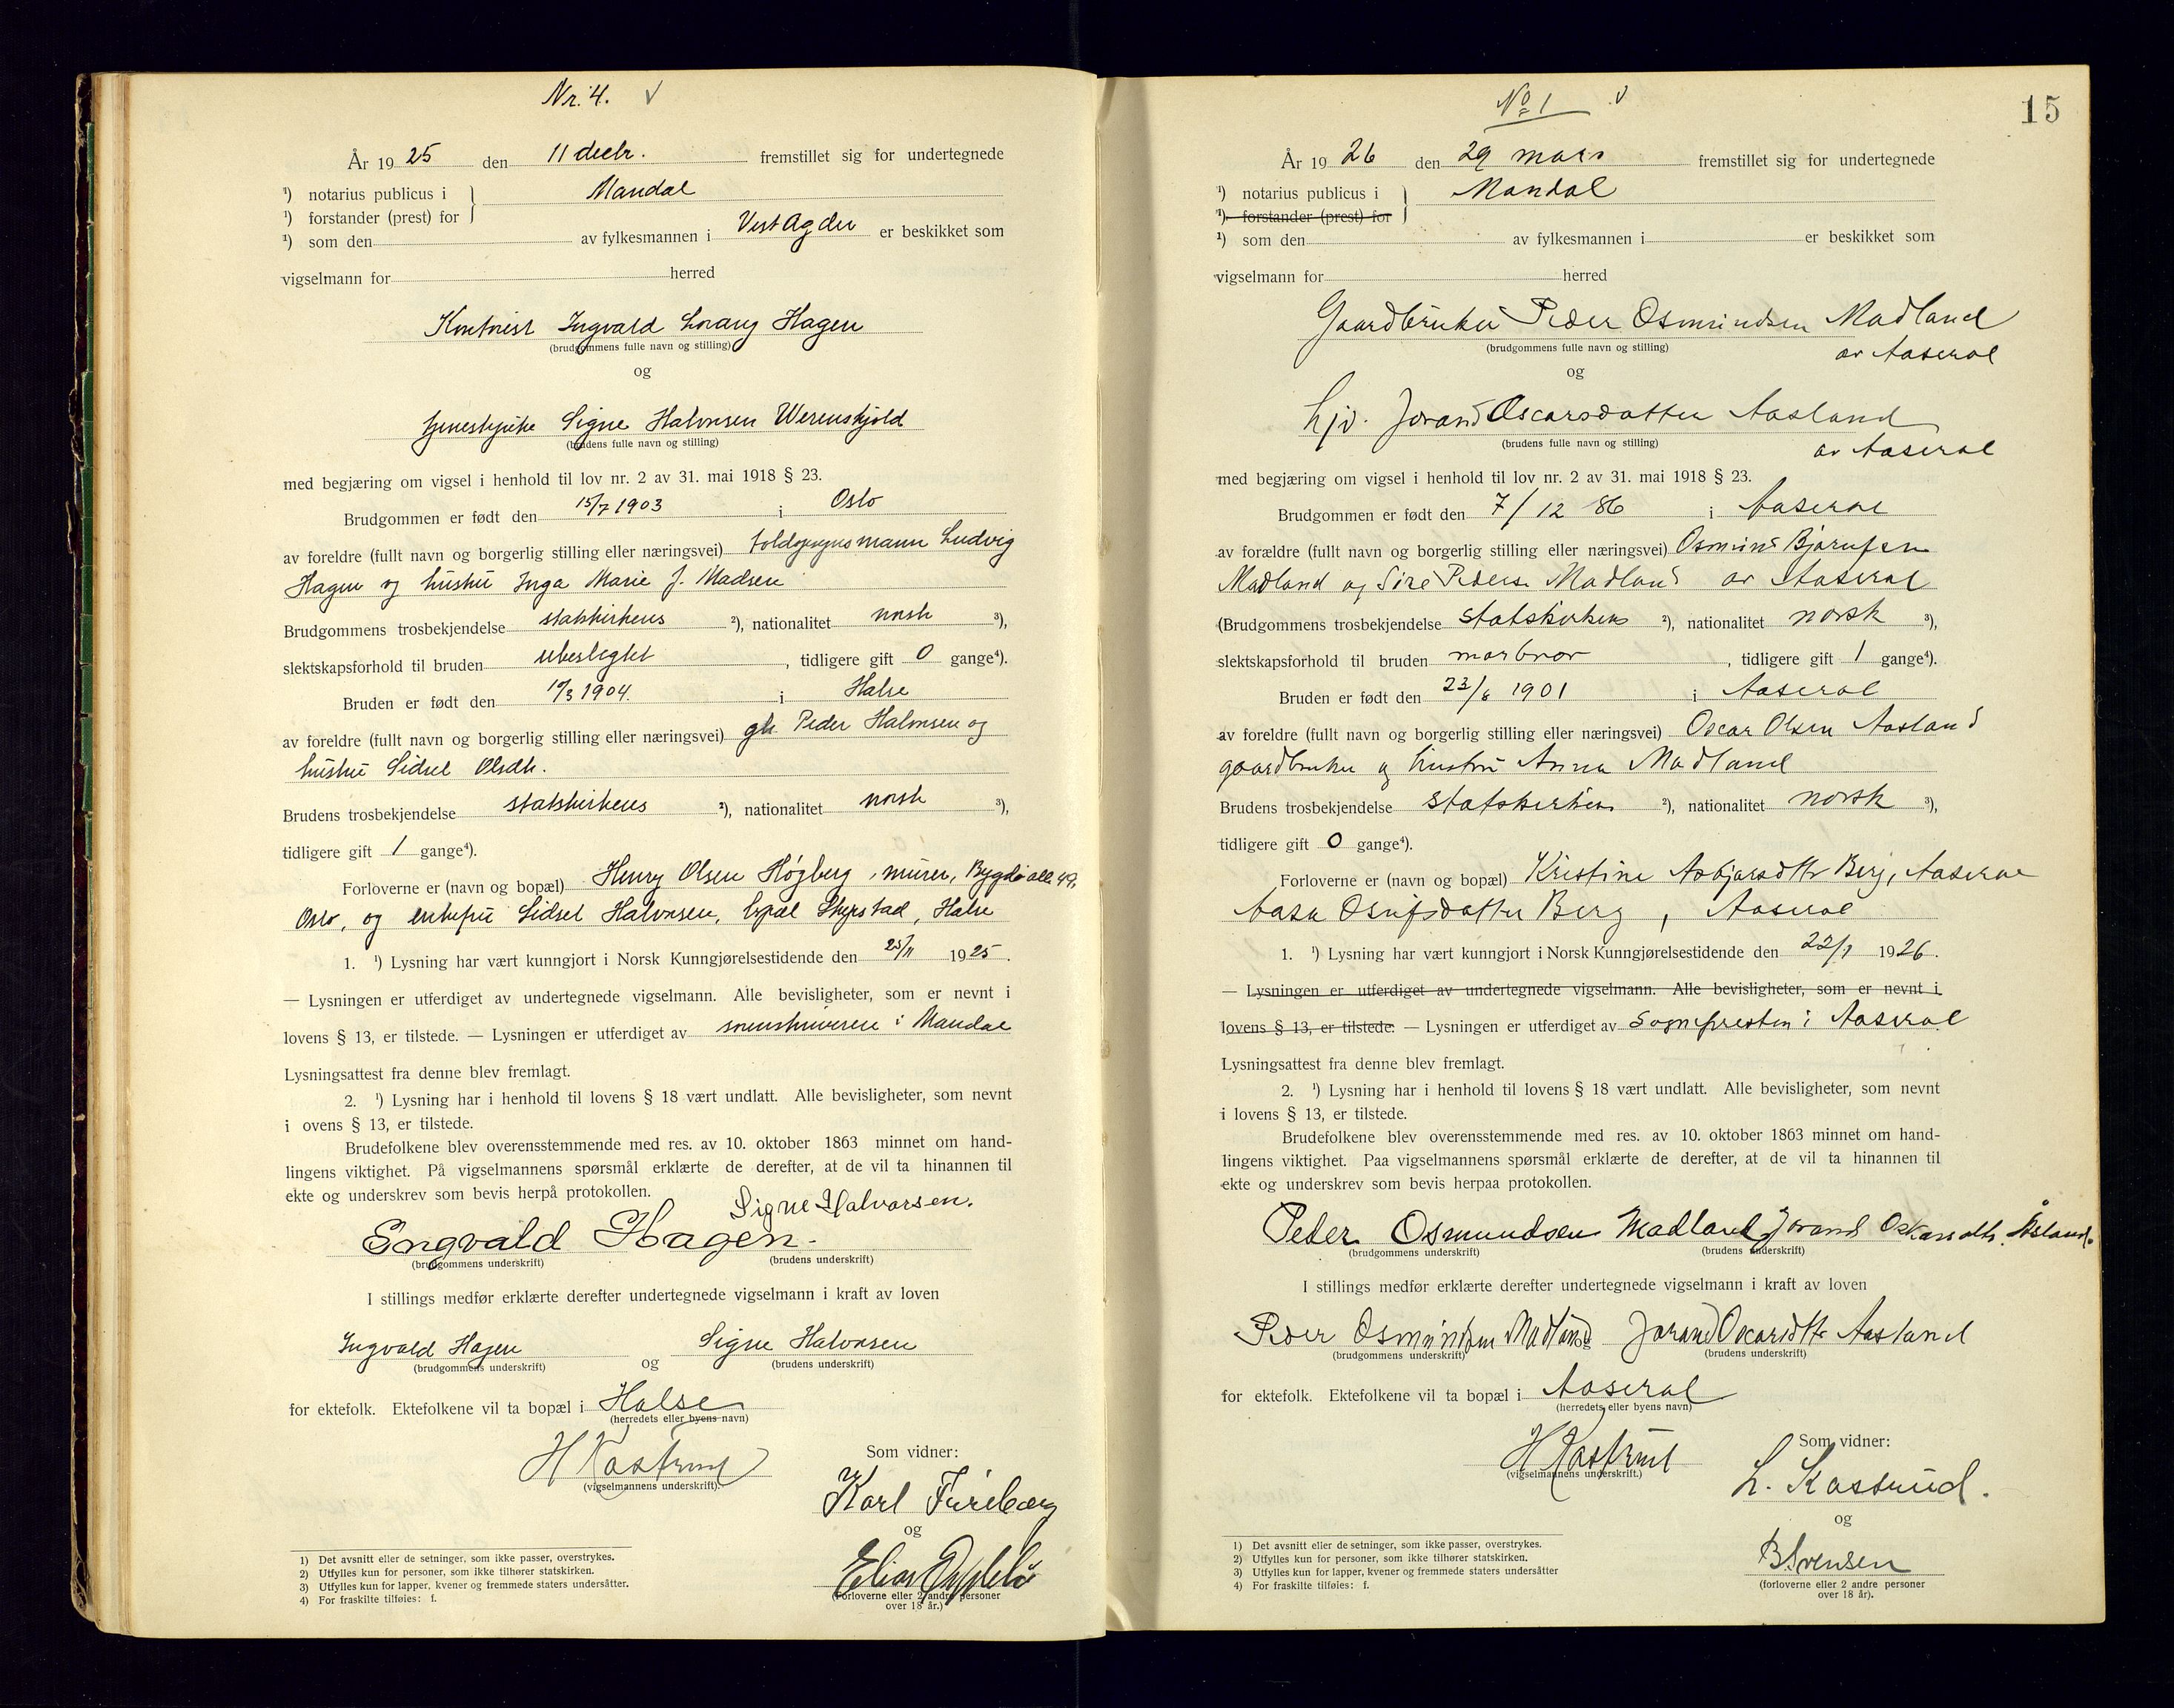 Nr. 4. V
År 19 25 den 11 decbr. fremstillet sig for undertegnede
¹) notarius publicus i } Mandal
¹) forstander (prest) for
¹) som den av fylkesmannen i Vest Agder er beskikket som
vigselmann for herred
Kontorist Ingvald Lorang Hagen
(brudgommens fulle navn og stilling)
og
tjenestepike Signe Halvorsen Werenskjold
(brudens fulle navn og stilling)
med begjæring om vigsel i henhold til lov nr. 2 av 31. mai 1918 § 23.
Brudgommen er født den 15/7 1903 i Oslo
av foreldre (fullt navn og borgerlig stilling eller næringsvei) Ludvig
Hagen og hustru Inga Marie J. Madsen
Brudgommens trosbekjendelse statskirkens ²), nationalitet norsk ³),
slektskapsforhold til bruden ubeslegtet , tidligere gift 0 gange⁴).
Bruden er født den 1904. i Halse
av foreldre (fullt navn og borgerlig stilling eller næringsvei) gbr. Peder Halvorsen og
hustru Sidsel Olsdtr.
Brudens trosbekjendelse statskirkens ²), nationalitet norsk ³),
tidligere gift 1 gange⁴).
Forloverne er (navn og bopæl) Henry Olsen Høgberg, murer, Bygdø alle 49,
Oslo, og enkefru Sidsel Halvorsen, bopæl Skjerstad, Halse
1. ¹) Lysning har vært kunngjort i Norsk Kunngjørelsestidende den 23/11 1925.
— Lysningen er utferdiget av undertegnede vigselmann. Alle bevisligheter, som er nevnt i
lovens § 13, er tilstede. — Lysningen er utferdiget av sorenskriveren i Mandal
Lysningsattest fra denne blev fremlagt.
2. ¹) Lysning har i henhold til lovens § 18 vært undlatt. Alle bevisligheter, som nevnt
i ovens § 13, er tilstede.
Brudefolkene blev overensstemmende med res. av 10. oktober 1863 minnet om hand-
lingens viktighet. På vigselmannens spørsmål erklærte de derefter, at de vil ta hinannen til
ekte og underskrev som bevis herpå protokollen.
Signe Halvorsen.
Engvald Hagen.
(brudgommens underskrift) (brudens underskrift)
I stillings medfør erklærte derefter undertegnede vigselmann i kraft av loven
Ingvald Hagen og Signe Halvorsen
(brudgommens underskrift) (brudens underskrift)
for ektefolk. Ektefolkene vil ta bopæl i Halse
(herredets eller byens navn)
H Kastrud
(vigselmannens underskrift).
Som vidner:
Karl Fureberg
og
Elias
(Forloverne eller 2 andre personer
over 18 år.)
1) Det avsnitt eller de setninger, som ikke passer, overstrykes.
2) Utfylles kun for personer, som ikke tilhører statskirken.
3) Utfylles kun for lapper, kvener og fremmede staters undersåtter.
4) For fraskilte tilføies: f.
15
No 1 V
År 19 26 den 29 mars fremstillet sig for undertegnede
¹) notarius publicus i } Mandal
¹) forstander (prest) for
¹) som den av fylkesmannen i er beskikket som
vigselmann for herred
Gaardbruker Peder Osmundsen Madland
(brudgommens fulle navn og stilling) av Aaseral
og
hjv. Jorand Oscarsdatter Aasland
(brudens fulle navn og stilling) av Aaseral
med begjæring om vigsel i henhold til lov nr. 2 av 31. mai 1918 § 23.
Brudgommen er født den 7/12 86 i Aaseral
av forældre (fullt navn og borgerlig stilling eller næringsvei) Osmund Bjørnsen
Madland og Sire Pedersd. Madland av Aaseral
(Brudgommens trosbekjendelse Statskirkens ²), nationalitet norsk ³),
slektskapsforhold til bruden morbror , tidligere gift 1 gange⁴).
Bruden er født den 23/6 1901 i Aaseral
av foreldre (fullt navn og borgerlig stilling eller næringsvei) Oscar Olsen Aasland
gaardbruker og hustru Anna Madland
Brudens trosbekjendelse statskirken ²), nationalitet norsk ³),
tidligere gift 0 gange⁴).
Forloverne er (navn og bopæl) Kristine Asbjørsdtr Berg, Aaseral
Aasa Osufsdatter Berg, Aaseral
1. ¹) Lysning har vært kunngjort i Norsk Kunngjørelsestidende den 22/3 1926.
— Lysningen er utferdiget av undertegnede vigselmann. Alle bevisligheter, som er nevnt i
lovens § 13, er tilstede. — Lysningen er utferdiget av Sognepresten i Aaseral
Lysningsattest fra denne blev fremlagt.
2. ¹) Lysning har i henhold til lovens § 18 vært undlatt. Alle bevisligheter, som nevnt
i lovens § 13, er tilstede.
Brudefolkene blev overensstemmende med res. av 10. oktober 1863 minnet om hand-
lingens viktighet. Paa vigselmannens spørsmål erklærte de derefter, at de vil ta hinannen til
ekte og underskrev som bevis herpaa protokollen.
Peder Osmundsen Madland Jorand Oskarsdtr. Åsland.
(brudgommens underskrift) (brudens underskrift)
I stillings medfør erklærte derefter undertegnede vigselmann i kraft av loven
Peder Osmundsen Madland og Jorand Oscarsdtr Aasland
(brudgommens underskrift) (brudens underskrift)
for ektefolk. Ektefolkene vil ta bopæl i Aaseral
(herredets eller byens navn)
H Kastrud
(vigselmannens underskrift.)
Som vidner:
L. Kastrud.
og
B Svensen
(forloverne eller 2 andre personer
over 18 år).
1) Det avsnitt eller de setninger, som ikke passer, overstrykes.
2) Utfylles kun for personer, som ikke tilhører statskirken.
3) Utfylles kun for lapper, kvener og fremmede staters undersåtter
4) For fraskilte tilføies: f.